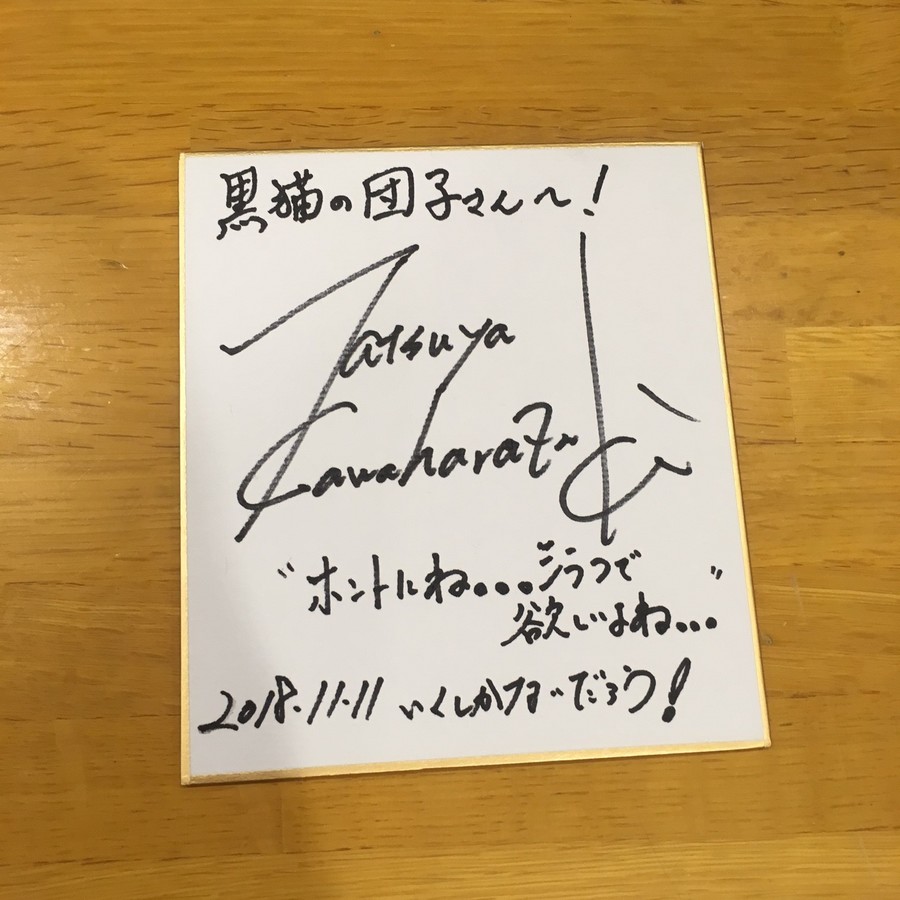 黒猫の団子さんへ!
Tatsuya
Kawaharazuka
"ホントにね...ジラフで
欲しいよね..."
2018.11.11 いくしかないだろう!